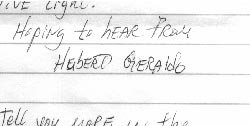 IVE LIGHT.
Hoping to HEAR FROM
HEBERT GERALDO
TELL YOU MORE in the